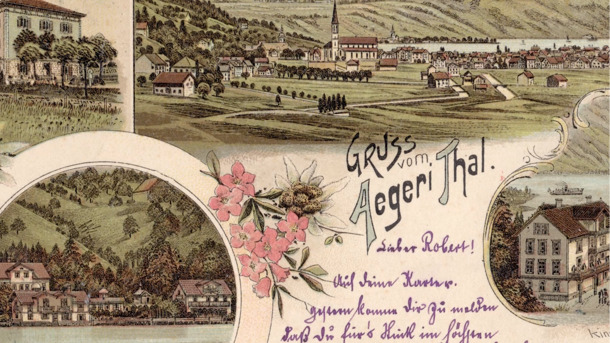 Gruss
vom
Aegeri Thal.
Lieber Robert!
Auf deine Karter.
gestern komme dir zu melden
daß du für's Stück im höchsten
Kin